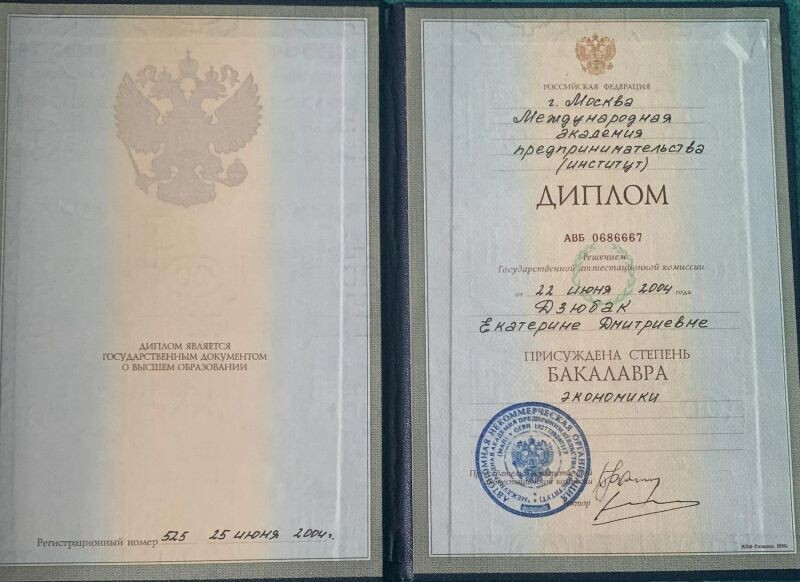 ДИПЛОМ ЯВЛЯЕТСЯ
ГОСУДАРСТВЕННЫМ ДОКУМЕНТОМ
О ВЫСШЕМ ОБРАЗОВАНИИ
Регистрационный номер 525 25 июня 2004г.
РОССИЙСКАЯ ФЕДЕРАЦИЯ
г. Москва
Международная
академия
предпринимательства
(институт)
ДИПЛОМ
АВБ 0686667
Решением
Государственной аттестационной комиссии
от 22 июня 2004 года
Дзюбак
Екатерине Дмитриевне
ПРИСУЖДЕНА СТЕПЕНЬ
БАКАЛАВРА
экономики
АВТОНОМНАЯ НЕКОММЕРЧЕСКАЯ ОРГАНИЗАЦИЯ
Председатель Государственной
аттестационной комиссии
Ректор